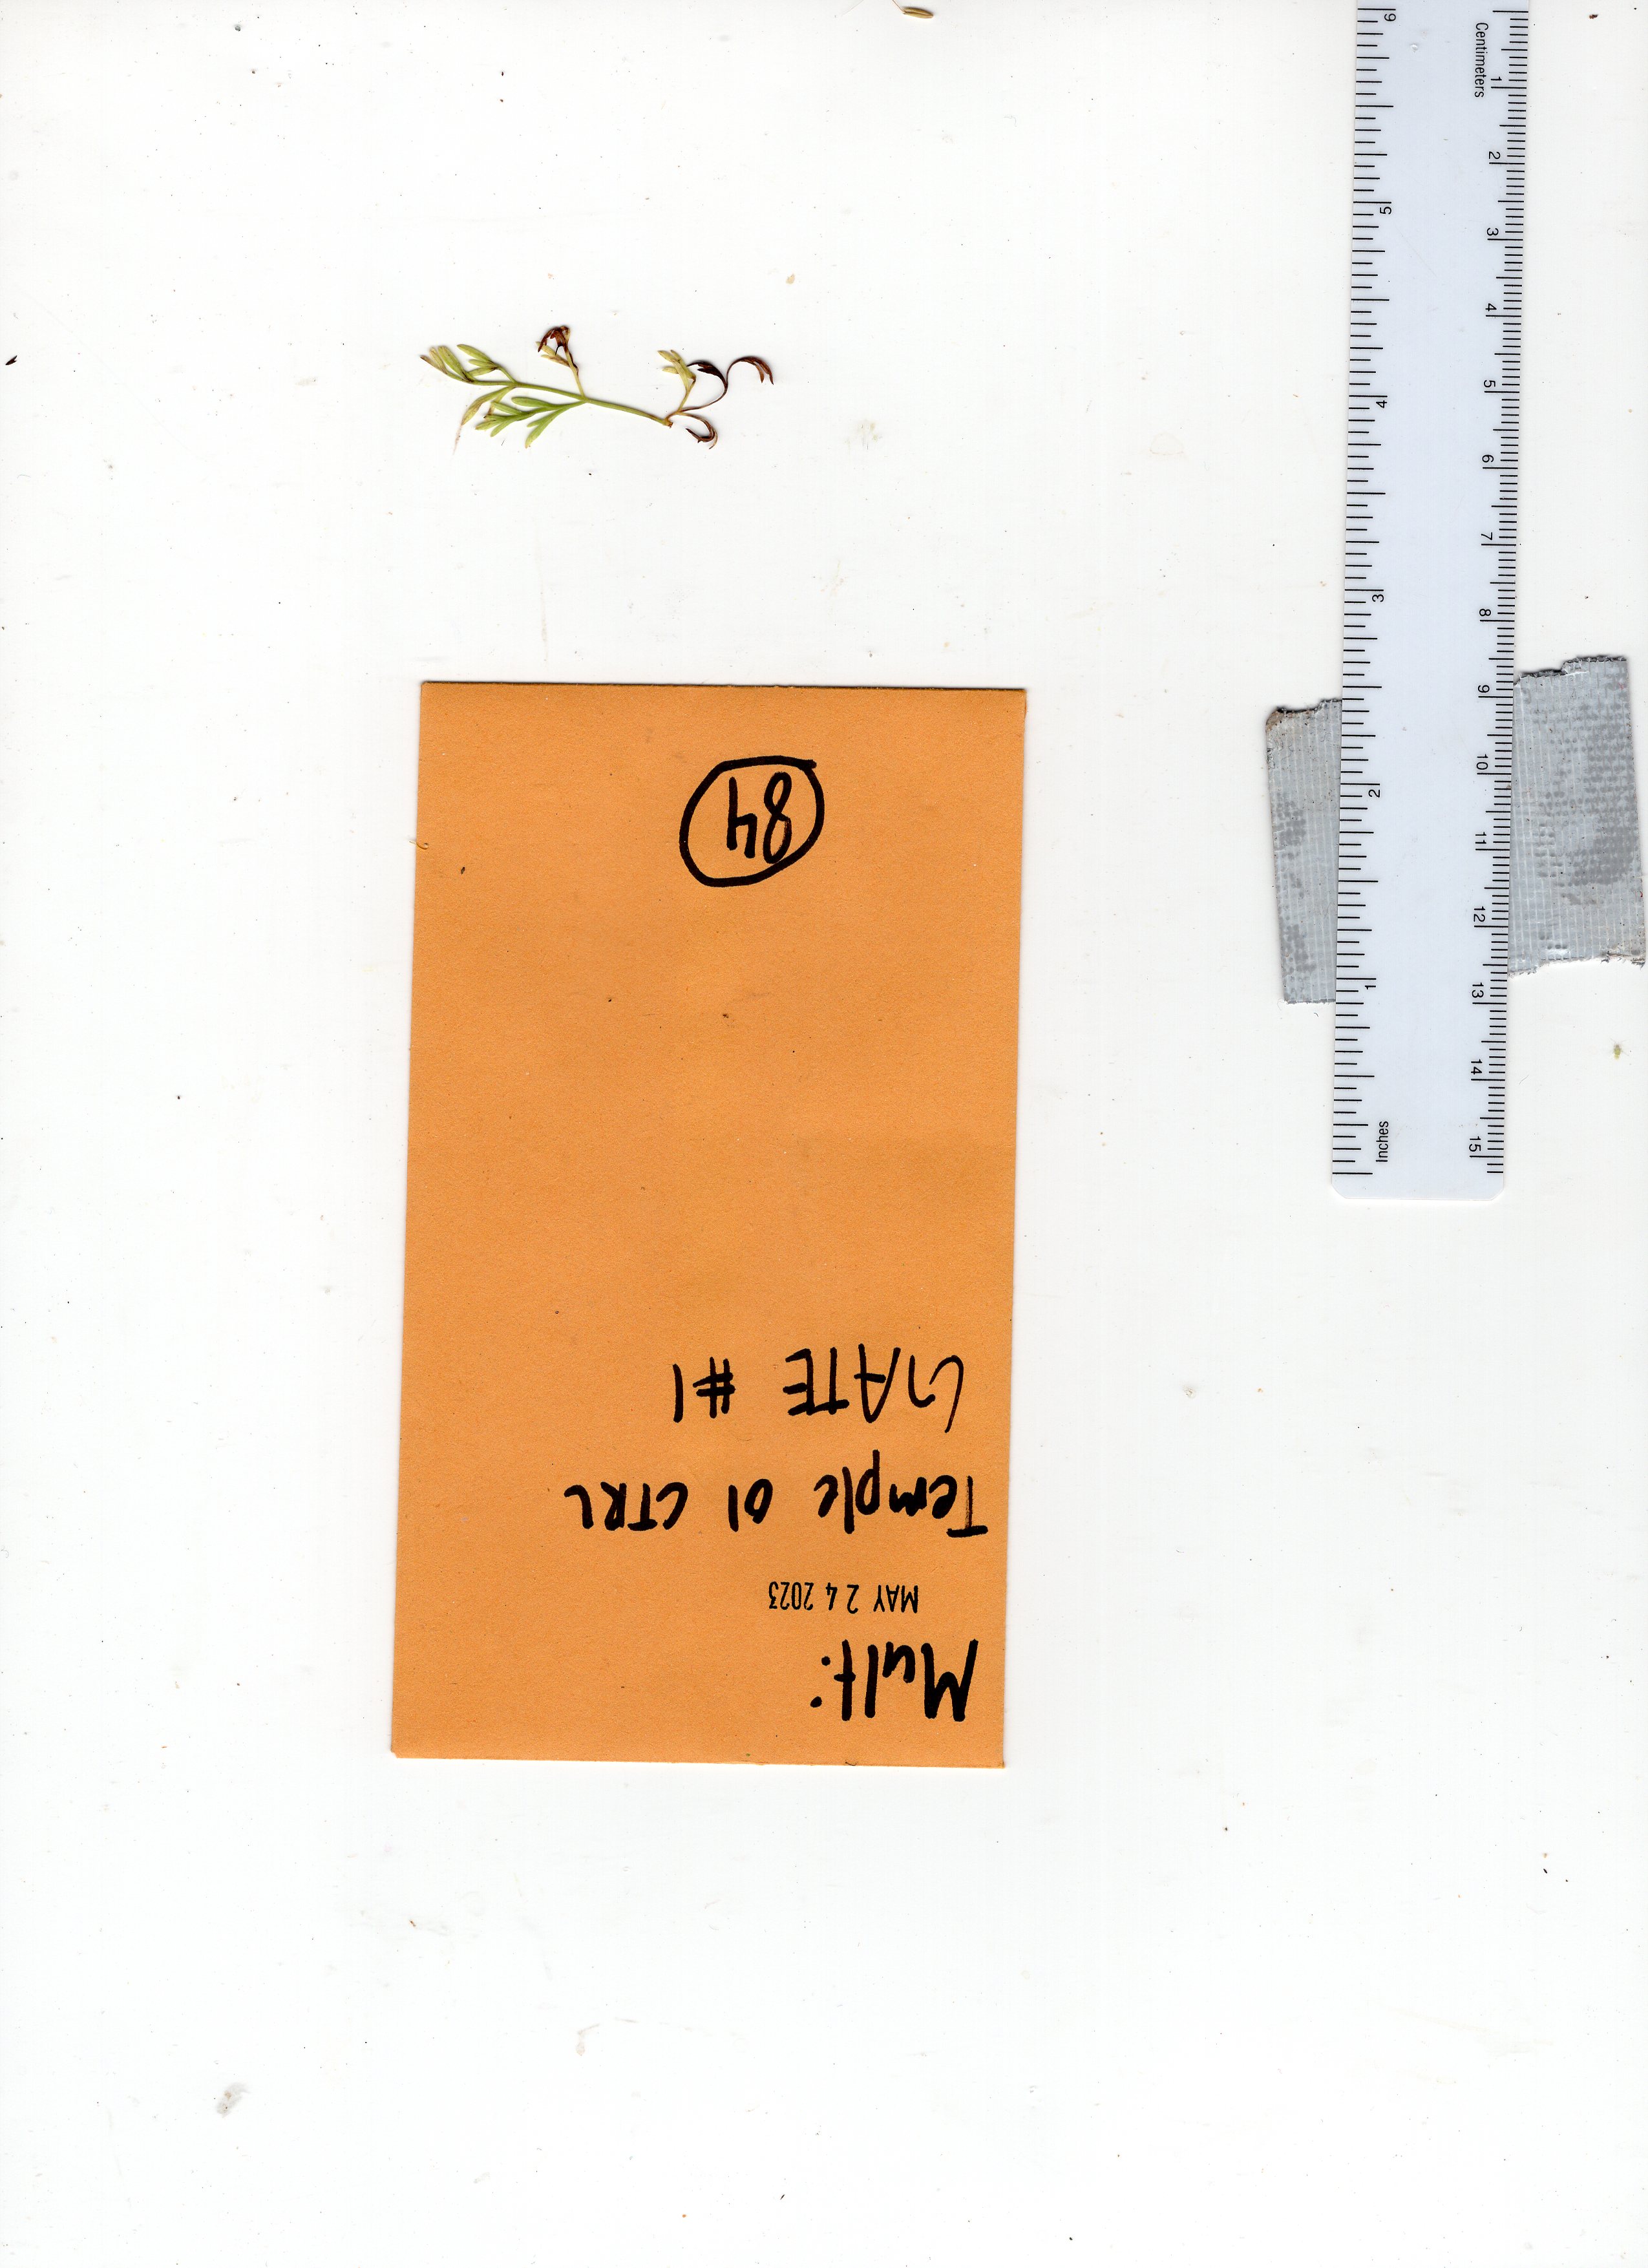 Mult:
MAY 24 2023
Temple 01 CTRL
GATE #1
84
Inches
1
2
3
4
5
6
15
14
13
12
11
10
9
8
7
6
5
4
3
2
1
Centimeters